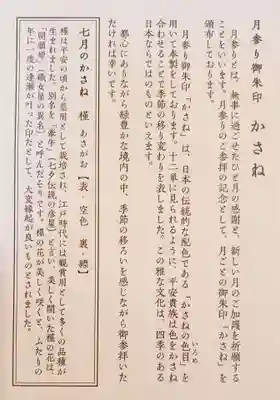 月参り御朱印 かさね
月参りとは、無事に過ごせたひと月の感謝と、新しい月のご加護を祈願する
ことをいいます。月参りのご参拝の記念として、月ごとの御朱印「かさね」を
頒布しております。
月参り御朱印「かさね」は、日本の伝統的な配色である「かさねの色目」を
いろめ
用いて奉製しております。十二単に見られるように、平安貴族は色をかさね
合わせることで季節の移り変わりを表しました。この雅な文化は、四季のある
日本ならではのものといえます。
都心にありながら緑豊かな境内の中、季節の移ろいを感じながら御参拝いた
だければ幸いです。
七月のかさね 槿 あさがお【表・空色 裏・縹】
槿は平安の頃から薬用として栽培され、江戸時代には観賞用として多くの品種が
生まれました。別名を「牽牛」(七夕伝説の彦星)と言い、美しく開いた槿の花は、
「朝顔姫(織女星の異名)」と呼んだそうです。槿の花が美しく咲くと、ふたりの
年に一度の逢瀬が叶った印だとして、大変縁起が良いものとされました。